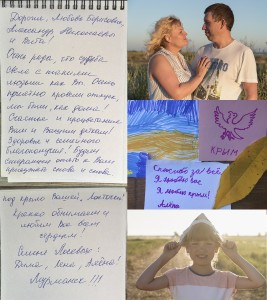 Дорогие, Любовь Борисовна,
Александр
и Всеволод!
Очень рады, что судьба
свела с такими
людьми как Вы! Было
приятно провели отпуск,
мы были, как дома!
Счастья и процветания
Вам и Вашим детям!
Здоровья и семейного
благополучия! Будем
стараться опять к Вам
приезжать снова и снова
под крыло Вашей, Любовь!
Крепко обнимаем и
любим Вас всем
сердцем!
Семья
Дима, Яна, Алёна!
Мурманск!!!
КРЫМ
Спасибо за всё
Я люблю вас
Я люблю крым!
Алёна